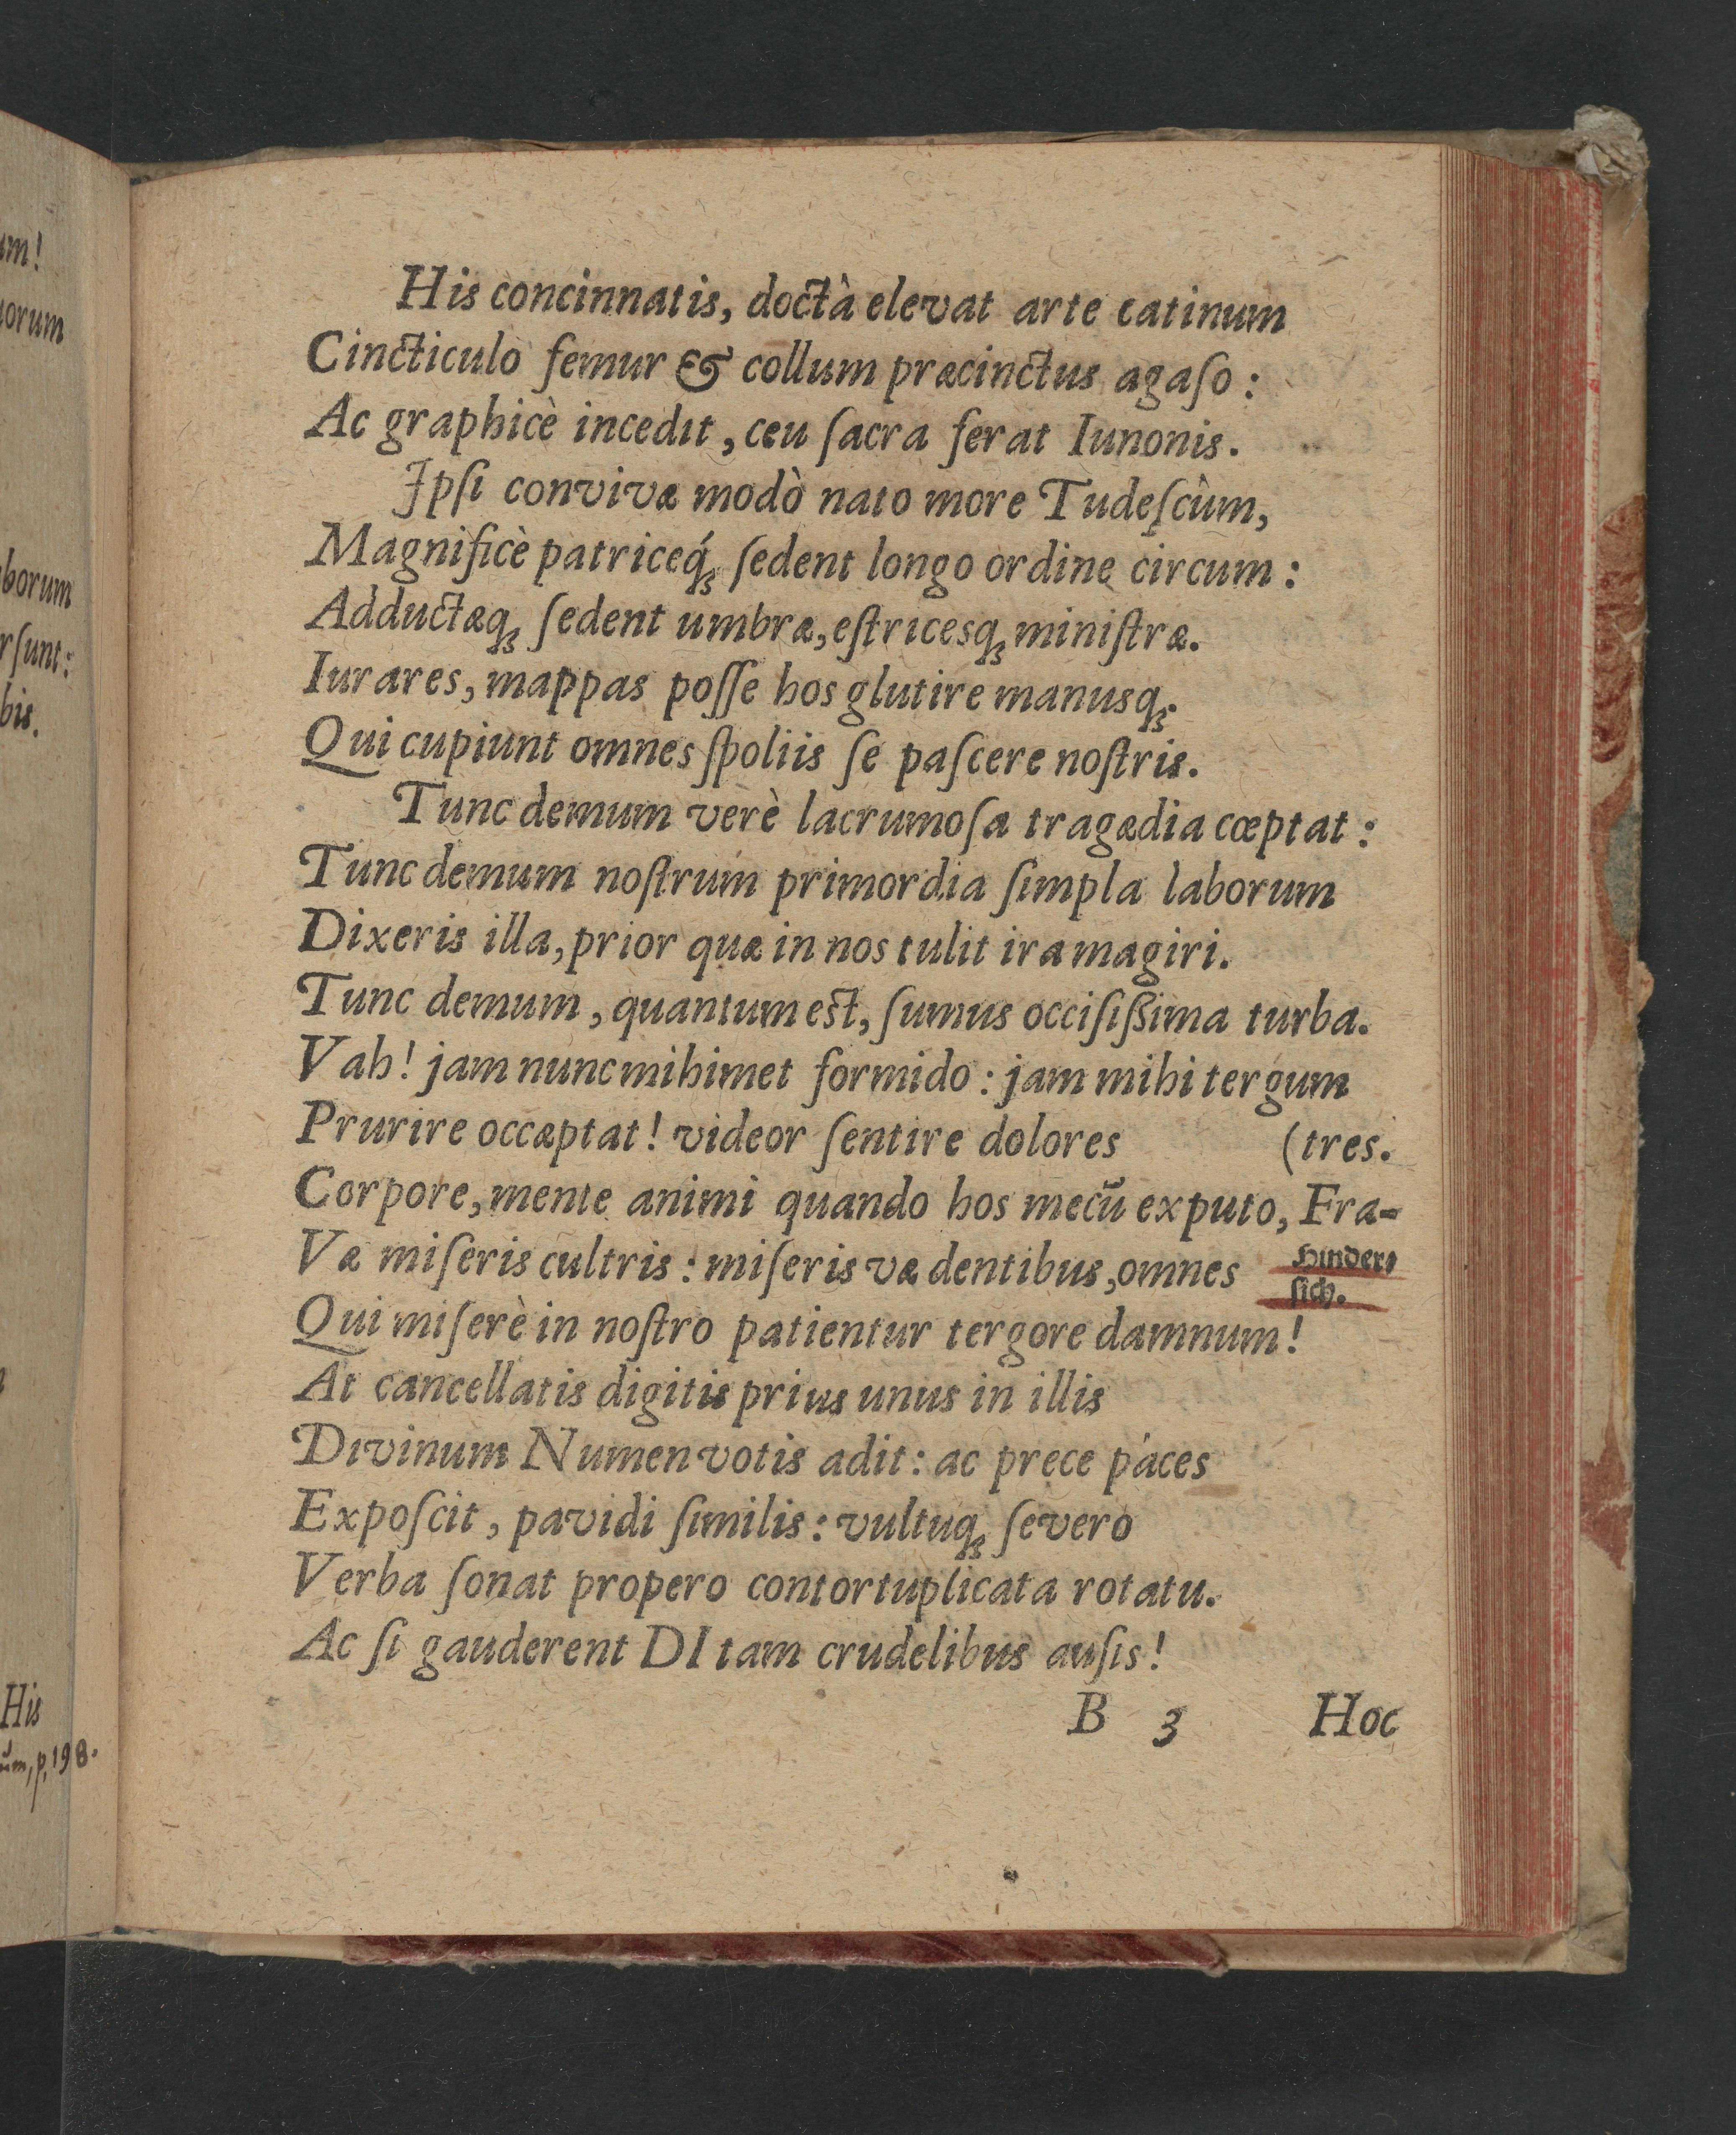 um!
uorum
borum
rſunt:
bis.
His
ũm, p. 198.
His concinnatis, doctà elevat arte catinum
Cincticulo femur & collum præcinctus agaſo:
Ac graphicè incedit, ceu ſacra ferat Iunonis.
Ipſi convivæ modò nato more Tudeſcûm,
Magnificè patriceq́ꝫ ſedent longo ordine circum:
Adductæqꝫ ſedent umbræ, eſtricesqꝫ miniſtræ.
Iurares, mappas poſſe hos glutire manusqꝫ.
Qui cupiunt omnes ſpoliis ſe paſcere noſtris.
Tunc demum verè lacrumoſa tragædia cœptat:
Tunc demum noſtrum primordia ſimpla laborum
Dixeris illa, prior quæ in nos tulit ira magiri.
Tunc demum, quantum est, ſumus occiſiſsima turba.
Vah! jam nunc mihimet formido: jam mihi tergum
Prurire occæptat! videor ſentire dolores (tres.
Corpore, mente animi quando hos mecũ exputo, Fra-
Væ miſeris cultris: miſeris væ dentibus, omnes
Hinder-
ſich.
Qui miſerè in noſtro patientur tergore damnum!
At cancellatis digitis prius unus in illis
Divinum Numen votis adit: ac prece paces
Expoſcit, pavidi ſimilis: vultuqꝫ ſevero
Verba ſonat propero contortuplicata rotatu.
Ac ſi gauderent DI tam crudelibus auſis!
B 3 Hoc